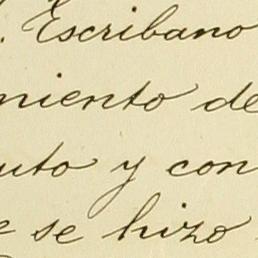 . Escribano
miento de
uto y con
e se hizo